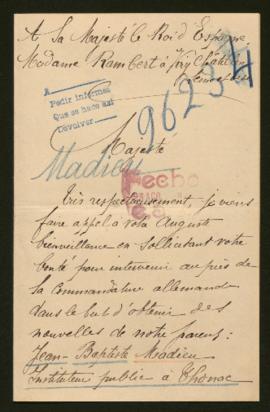 A Sa Majesté le Roi d'Espagne
Madame Rambert à
A
Pedir informes
Que se hace así
Devolver
96234
Majesté
Madieu
Fecho
Très respectueusement, je viens
faire appel à votre Auguste
bienveillance en sollicitant votre
bonté pour intervenir au près de
la Commandature allemande
dans le but d'obtenir des
nouvelles de notre parent :
Jean-Baptiste Madieu
Instituteur public à Thonac